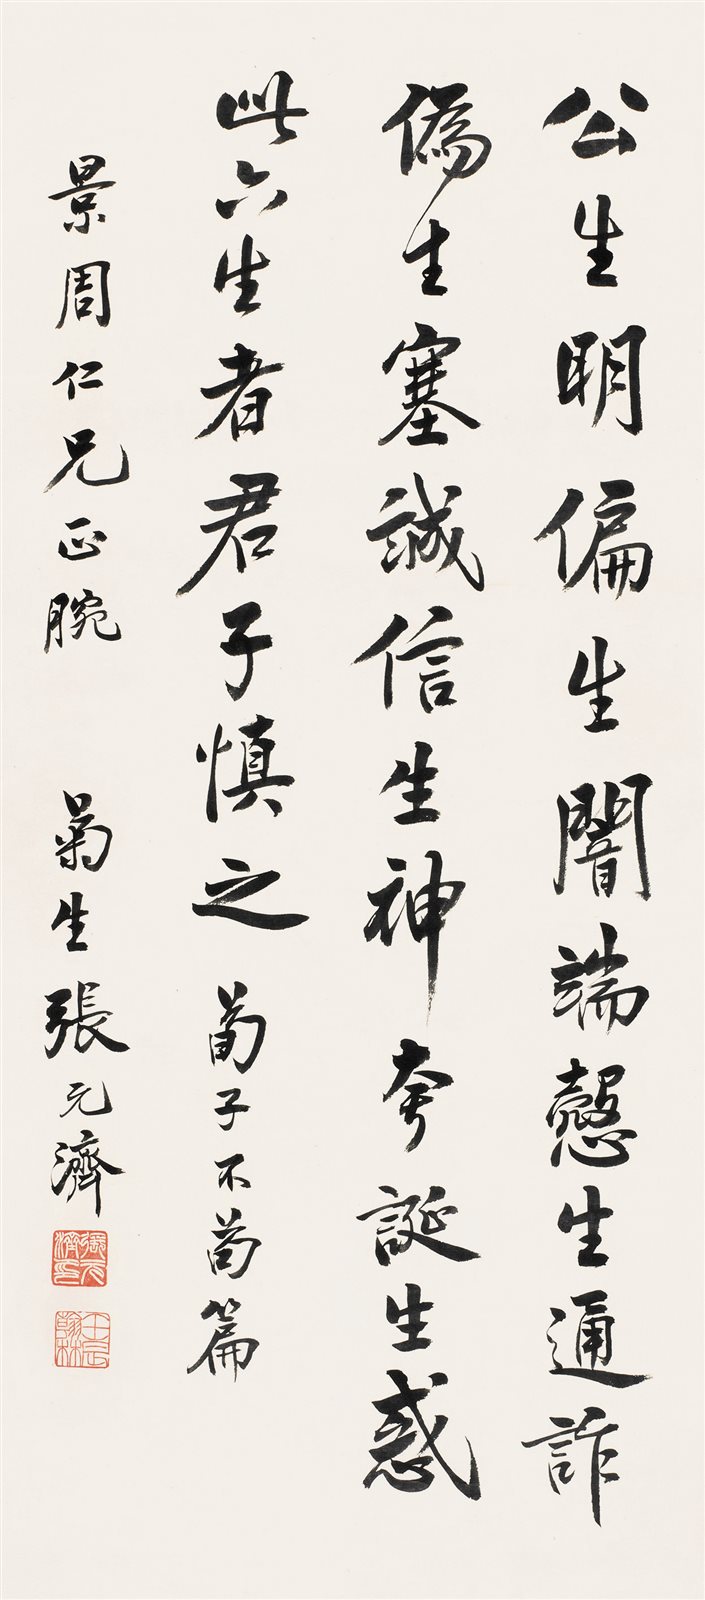 公生明偏生闇端慤生通詐
偽生塞誠信生神夸誕生惑
此六生者君子慎之 荀子不苟篇
景周仁兄正腕 菊生張元濟
張元濟印
壬辰翰林